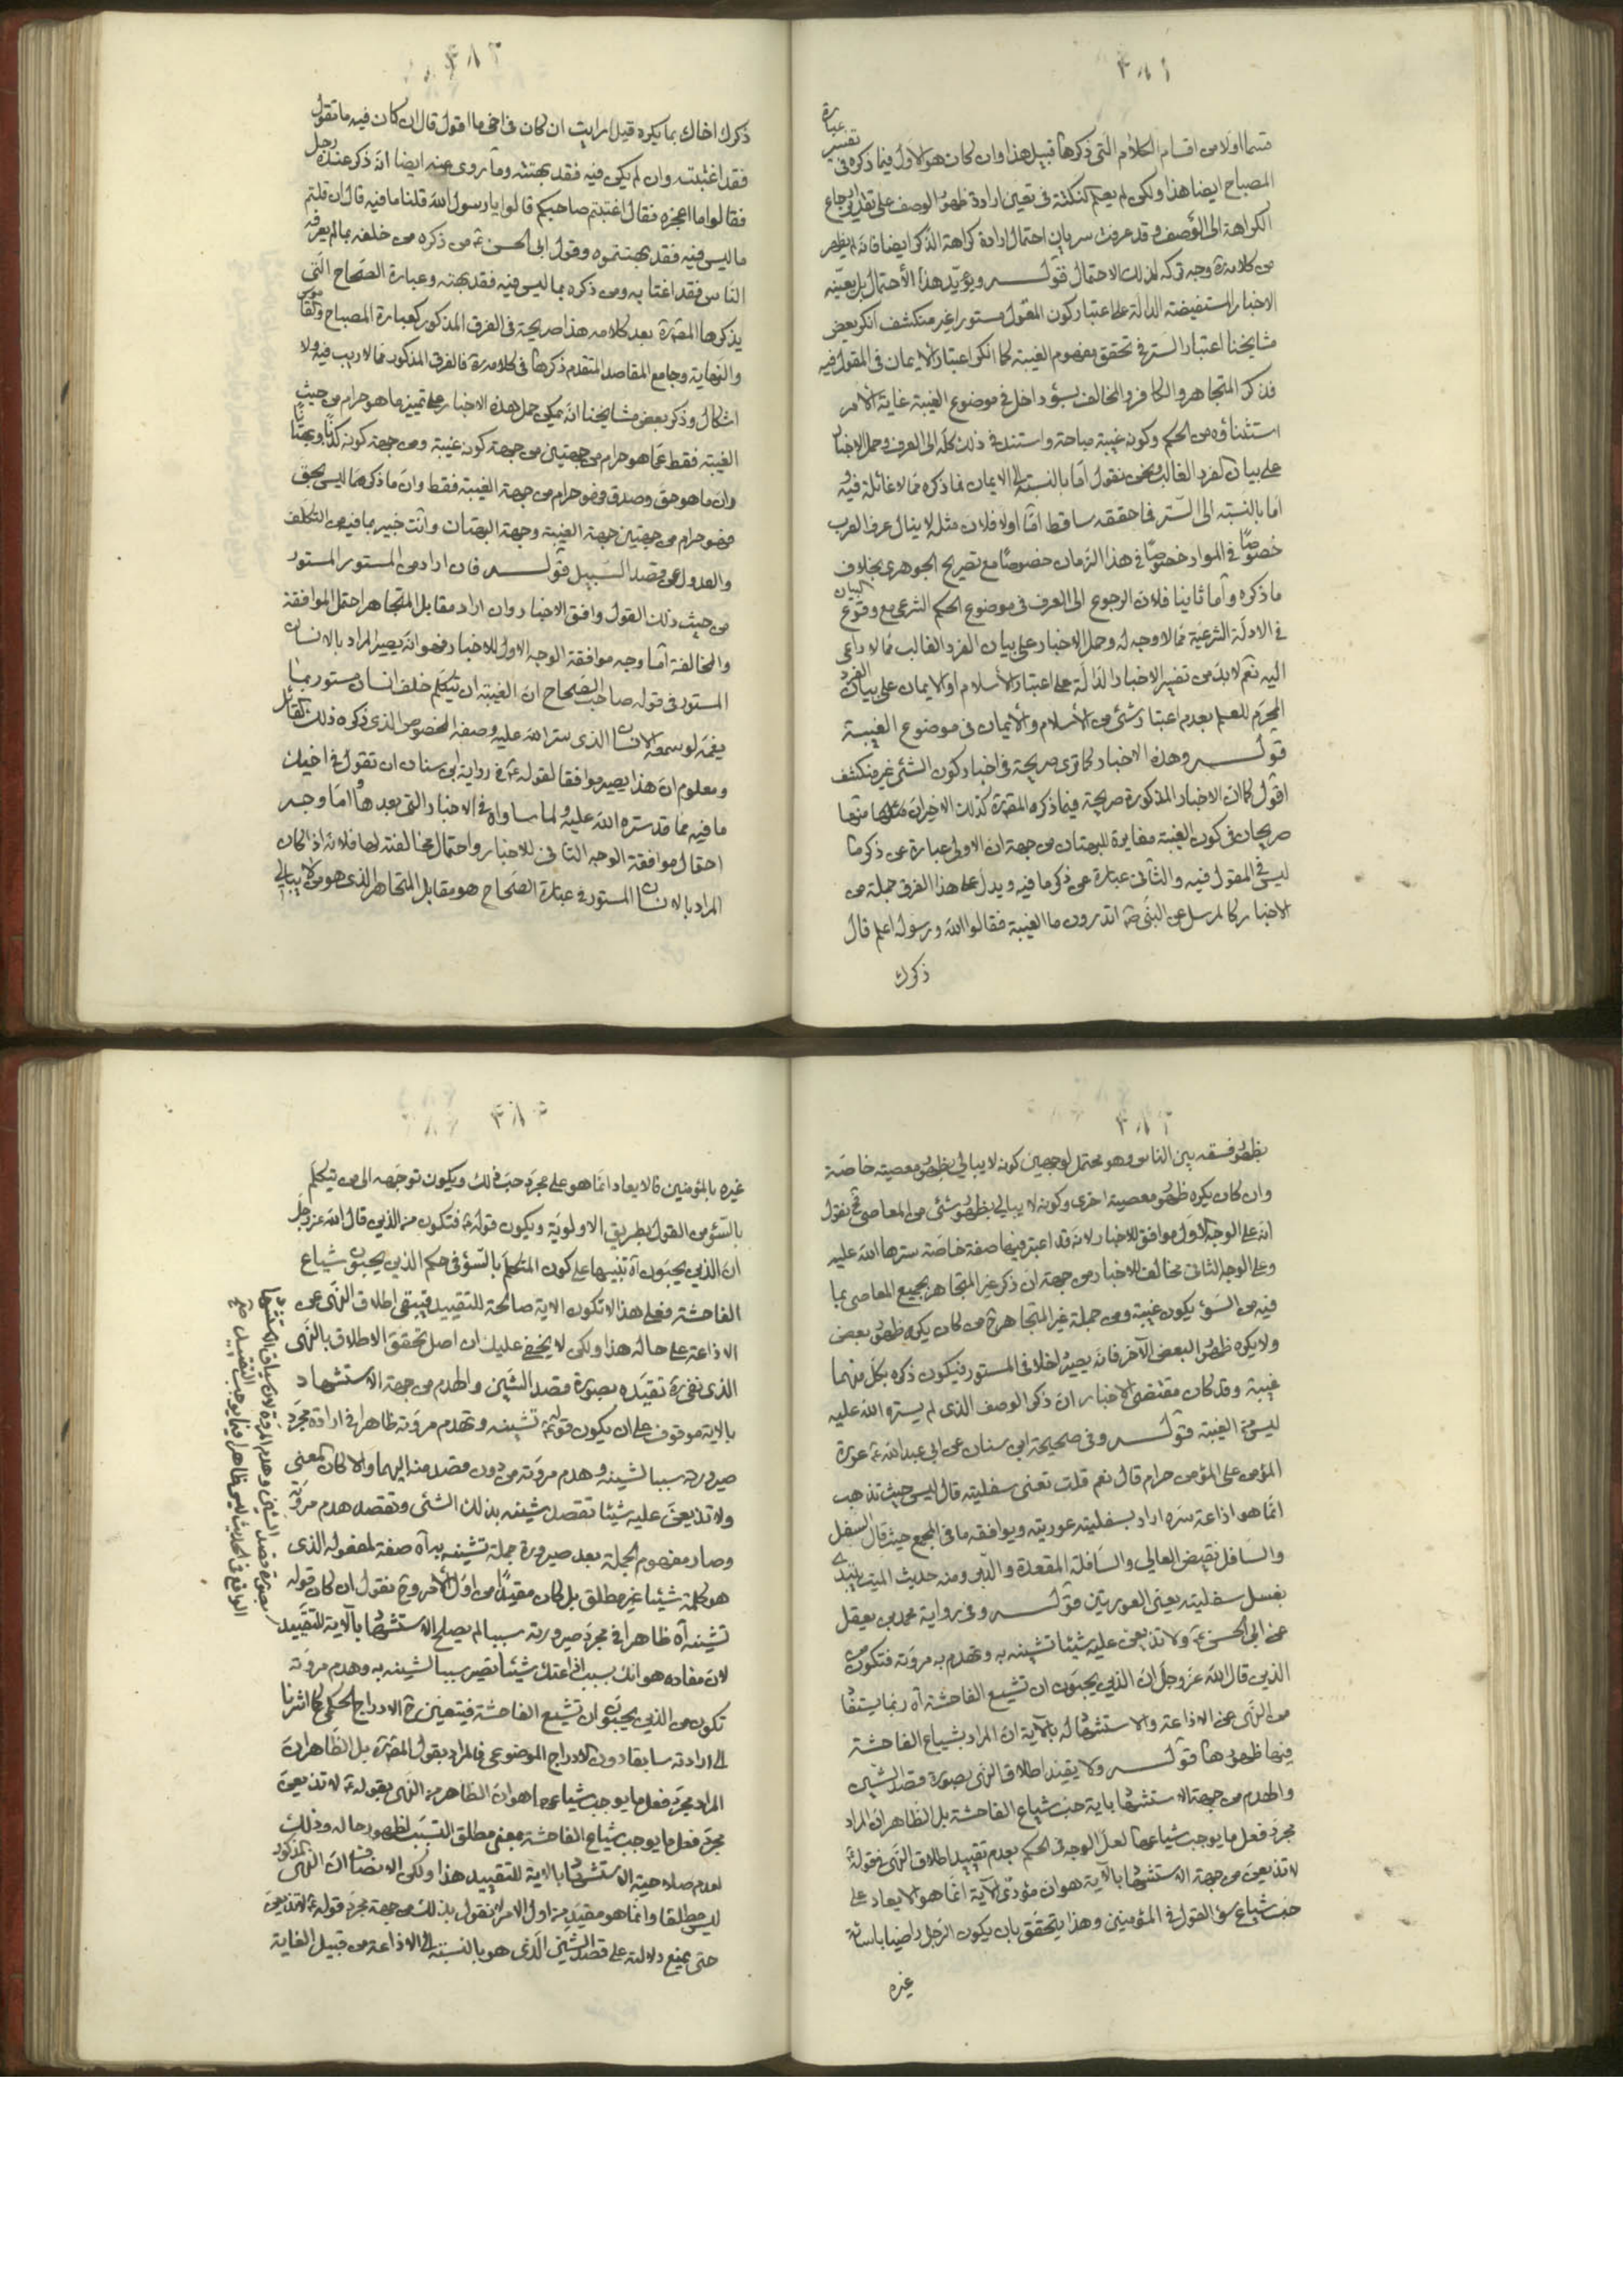 ٣٨١
قسما اولا من اقسام الكلام التى ذكرها قبيل هذا وان كان هو الاول فيما ذكره فى تفسير عبارة
المصباح ايضا هذا ولكن لم يعلم نكتة فى تعيين ارادة ظهور الوصف على تقدير ارجاع
الكراهة الى الوصف وقد عرفت سريان احتمال ارادة كراهة الذكر ايضا فانه لم يظهر
من كلامه ره وجه تركه لذلك الاحتمال قوله ويؤيد هذا الأحتمال بل يعينه
الاخبار المستفيضة الدالة على اعتبار كون المقول مستورا غير منكشف انكر بعض
مشايخنا اعتبار الستر فى تحقق مفهوم الغيبة كما انكر اعتبار الايمان فى المقول فيه
فذكر المتجاهر والكافر والمخالف بسوء داخل فى موضوع الغيبة غاية الأمر
استثناؤه من الحكم وكونه غيبة مباحة واستند فى ذلك كله الى العرف وحمل الاخبار
على بيان الفرد الغالب ونحن نقول اما بالنسبة الى الايمان فما ذكره مما لا غائلة فيه و
اما بالنسبة الى الستر فما حققه ساقط امّا اولا فلان مثله لا ينال عرف العرب
خصوصا فى المواد خصوصا فى هذا الزمان خصوصا مع تصريح الجوهرى بخلاف
ما ذكره وأما ثانيا فلان الرجوع الى العرف فى موضوع الحكم الشرعى مع وقوع البيان
فى الادلة الشرعية مما لا وجه له وحمل الاخبار على بيان الفرد الغالب مما لا داعى
اليه نعم لابد من تفسير الاخبار الدالة على اعتبار الأسلام او الايمان على بيان الفرد
المحرم للعلم بعدم اعتبار شئ من الأسلام والأيمان فى موضوع الغيبة
قوله وهذه الاخبار كما ترى صريحة فى اعتبار كون الشئ غير منكشف
اقول كما ان الاخبار المذكورة صريحة فيما ذكره المص ره كذلك الاخيران منها
صريحان فى كون الغيبة مغايرة للبهتان من جهة ان الاولى عبارة عن ذكر ما
ليس فى المقول فيه والثانى عبارة عن ذكر ما فيه ويدل على هذا الفرق جملة من
الاخبار كالمرسل عن النبى ص اتدرون ما الغيبة فقالوا الله ورسوله اعلم قال
ذكرك
٣٨٢
ذكرك اخاك بما يكره قيل ارايت ان كان فى اخى ما اقول قال ان كان فيه ما تقول
فقد اغتبته وان لم يكن فيه فقد بهتته وما روى عنه ايضا انه ذكر عنده رجل
فقالوا ما اعجزه فقال اغتبتم صاحبكم قالوا يا رسول الله قلنا ما فيه قال ان قلتم
ما ليس فيه فقد بهتتموه وقول ابى الحسن ع من ذكره من خلفه بما لم يعرفه
الناس فقد اغتابه ومن ذكره بما ليس فيه فقد بهته وعبارة الصحاح التى
يذكرها المص ره بعد كلامه هذا صريحة فى الفرق المذكور كعبارة المصباح والقاموس
والنهاية وجامع المقاصد المتقدم ذكرها فى كلامه ره فالفرق المذكور مما لا ريب فيه ولا
اشكال وذكر بعض مشايخنا انه يمكن حمل هذه الاخبار على تمييز ما هو حرام من حيث
الغيبة فقط عما هو حرام من جهتين من جهة كونه غيبة ومن جهة كونه كذبا وبهتانا
وان ما هو حق وصدق فهو حرام من جهة الغيبة فقط وان ما ذكر مما ليس بحق
فهو حرام من جهتين جهة الغيبة وجهة البهتان وانت خبير بما فيه من التكلف
والعدول عن قصد السبيل قوله فان اراد من المستور المستور
من حيث ذلك القول وافق الاخبار وان اراد مقابل المتجاهر احتمل الموافقة
والمخالفة أما وجه موافقة الوجه الاول للاخبار فهو انه يصير المراد بالانسان
المستور فى قول صاحب الصحاح ان الغيبة ان يتكلم خلف انسان مستور بما
يغمه لو سمعه الانسان الذى ستر الله عليه وصفه المخصوص الذى ذكره ذلك القائل
ومعلوم ان هذا يصير موافقا لقوله ع فى رواية ابن سنان ان تقول فى اخيك
ما فيه مما قد ستره الله عليه ولما ساواه فى الاخبار التى بعدها واما وجه
احتمال موافقة الوجه الثانى للاخبار واحتمال مخالفته لها فلانه اذا كان
المراد بالانسان المستور فى عبارة الصحاح هو مقابل المتجاهر الذى هو من لا يبالى
٣٨٣
بظهور فسقه بين الناس وهو محتمل لوجهين كونه لا يبالى بظهور معصية خاصة
وان كان يكره ظهور معصية اخرى وكونه لا يبالى بظهور شئ من المعاصى فح نقول
انه على الوجه الاول موافق للاخبار لانه قد اعتبر فيها صفة خاصة سترها الله عليه
وعلى الوجه الثانى مخالف للاخبار من جهة ان ذكر غير المتجاهر بجميع المعاصى بما
فيه من السوء يكون غيبة ومن جملة غير المتجاهر ح من كان يكره ظهور بعض
ولا يكره ظهور البعض الآخر فانه يصير داخلا فى المستور فيكون ذكره بكل منهما
غيبة وقد كان مقتضى الاخبار ان ذكر الوصف الذى لم يستره الله عليه
ليس من الغيبة قوله وفى صحيحة ابن سنان عن ابى عبد الله ع عورة
المؤمن على المؤمن حرام قال نعم قلت تعنى سفليته قال ليس حيث تذهب
انما هو اذاعة سره اراد بسفليته عوريته ويوافقه ما فى المجمع حيث قال السفل
والسافل نقيض العالى والسافلة المقعدة والدبر ومنه حديث الميت يبتدئ
بغسل سفليته يعنى العورتين قوله وفى رواية محمد بن يعقل
عن ابى الحسن ع ولا تذيعن عليه شيئا تشينه به وتهدم به مروته فتكون من
الذين قال الله عز وجل ان الذين يحبون ان تشيع الفاحشة آه ربما يستفاد
من النهى عن الاذاعة والاستشهاد له بالآية ان المراد بشياع الفاحشة
فيها ظهورها قوله ولا يقيد اطلاق النهى بصورة قصد الشين
والهدم من جهة الاستشهاد باية حب شياع الفاحشة بل الظاهر ان المراد
مجرد فعل ما يوجب شياعها لعل الوجه فى الحكم بعدم تقييد اطلاق النهى فى قوله ع
لا تذيعن من جهة الاستشهاد بالآية هو ان مؤدى الآية انما هو الايعاد على
حب شياع سوء القول فى المؤمنين وهذا يتحقق بان يكون الرجل راضيا باسائة
غيره
٣٨٤
غيره بالمؤمنين فالايعاد انما هو على مجرد حب ذلك ويكون توجهه الى من يتكلم
بالسوء من القول بطريق الاولوية ويكون قوله ع فتكون من الذين قال الله عز وجل
ان الذين يحبون آه تنبيها على كون المتكلم بالسوء فى حكم الذين يحبون شياع
الفاحشة فعلى هذا لا تكون الاية صالحة للتقييد فيبقى اطلاق النهى عن
الاذاعة على حاله هذا ولكن لا يخفى عليك ان اصل تحقق الاطلاق بالنهى
الذى نفى ره تقييده بصورة قصد الشين والهدم من جهة الاستشهاد
بالاية موقوف على ان يكون قوله ع تشينه وتهدم مروته ظاهرا فى ارادة مجرد
صيرورته سببا لشينه وهدم مروته من دون قصد منه اليهما والا كان المعنى
ولا تذيعن عليه شيئا تقصد شينه بذلك الشئ وتقصد هدم مروته
وصار مفهوم الجملة بعد صيرورة جملة تشينه به آه صفة لمفعوله الذى
هو كلمة شيئا غير مطلق بل كان مقيدا من اول الأمر وح نقول ان كان قوله
تشينه آه ظاهرا فى مجرد صيرورته سببا لم يصلح الاستشهاد بالآية للتقييد
لان مفاده هو انك بسبب اذاعتك شيئا يصير سببا لشينه به وهدم مروته
تكون من الذين يحبون ان تشيع الفاحشة فيتعين ح الادراج الحكمى كما اشرنا
الى ارادته سابقا دون الادراج الموضوعى فالمراد بقول المص ره بل الظاهر ان
المراد مجرد فعل ما يوجب شياعها هو ان الظاهر من النهى بقوله ع لا تذيعن
مجرد فعل ما يوجب شياع الفاحشة بمعنى مطلق التسبب لظهور حاله وذلك
لعدم صلاحية الاستشهاد بالاية للتقييد هذا ولكن الانصاف ان النهى المذكور
ليس مطلقا وانما هو مقيد من اول الامر لا نقول بذلك من جهة مجرد قوله ع لا تذيعن
حتى يمنع دلالته على قصد الشين الذى هو بالنسبة الى الاذاعة من قبيل الغاية
بصورة قصد الشين وهدم المروة لان سياق الاستشهاد
الواقع فى الحديث ليس ظاهرا فيما يوجب التقييد صح